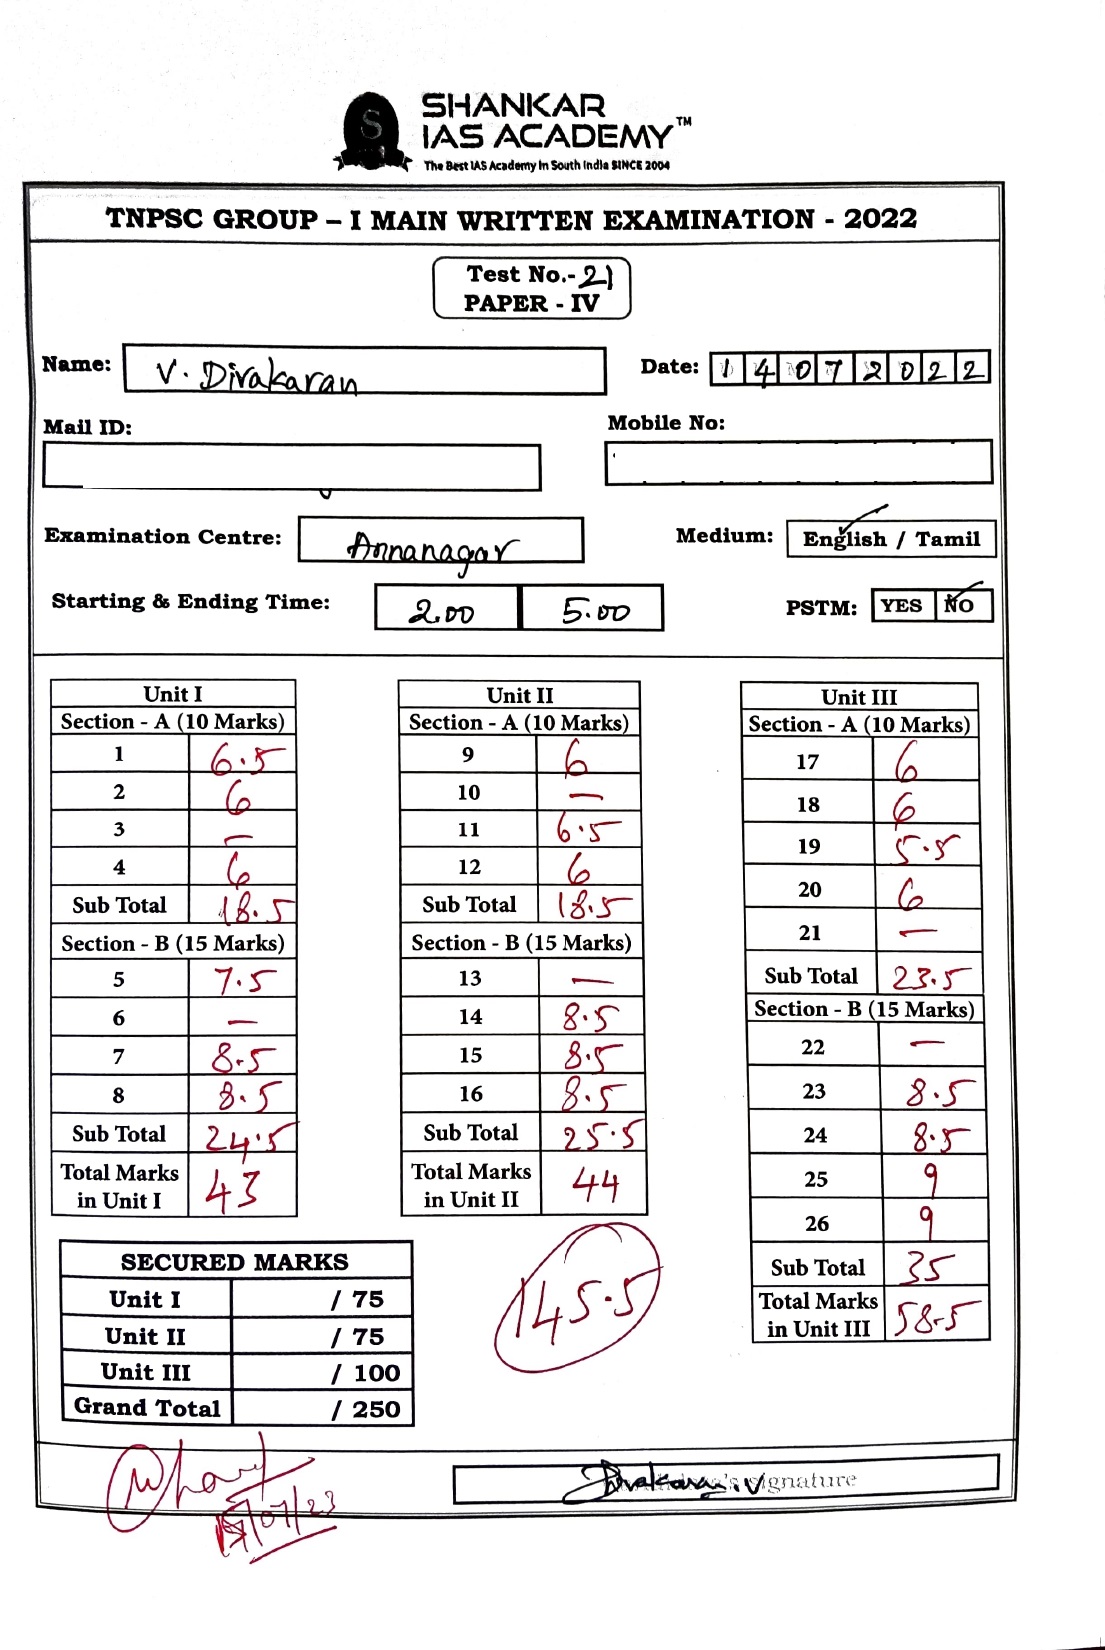 S
SHANKAR
IAS ACADEMY™
The Best IAS Academy In South India SINCE 2004
TNPSC GROUP – I MAIN WRITTEN EXAMINATION - 2022
Test No.- 21
PAPER - IV
Name: V. Divakaran Date: 14072022
Mail ID: Mobile No:
Examination Centre: Annanagar Medium: English / Tamil
Starting & Ending Time: 2.00 5.00 PSTM: YES NO
Unit I
Section - A (10 Marks)
1 6.5
2 6
3 –
4 6
Sub Total 18.5
Section - B (15 Marks)
5 7.5
6 –
7 8.5
8 8.5
Sub Total 24.5
Total Marks
in Unit I 43
Unit II
Section - A (10 Marks)
9 6
10 –
11 6.5
12 6
Sub Total 18.5
Section - B (15 Marks)
13 –
14 8.5
15 8.5
16 8.5
Sub Total 25.5
Total Marks
in Unit II 44
Unit III
Section - A (10 Marks)
17 6
18 6
19 5.5
20 6
21 –
Sub Total 23.5
Section - B (15 Marks)
22 –
23 8.5
24 8.5
25 9
26 9
Sub Total 35
Total Marks
in Unit III 58.5
SECURED MARKS
Unit I / 75
Unit II / 75
Unit III / 100
Grand Total / 250
145.5
Divakaran.V
signature
/07/23